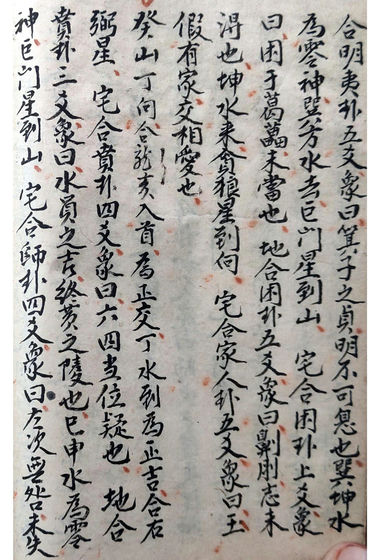 合明夷卦五爻象曰箕子之貞明不可息也巽坤水
為零神巽方水去巨门星到山　宅合困卦上爻象
曰困于葛藟未當也　地合困卦五爻象曰劓刖志未
淂也坤水来貪狼星到向　宅合家人卦五爻象曰王
假有家交相愛也
癸山丁向合亥入首為正交丁水到為正吉合右
弼星　宅合賁卦四爻象曰六四当位疑也　地合
賁卦三爻象曰永貞之吉終莫之陵也巳申水為零
神巨门星到山　宅合師卦四爻象曰左次無咎未失